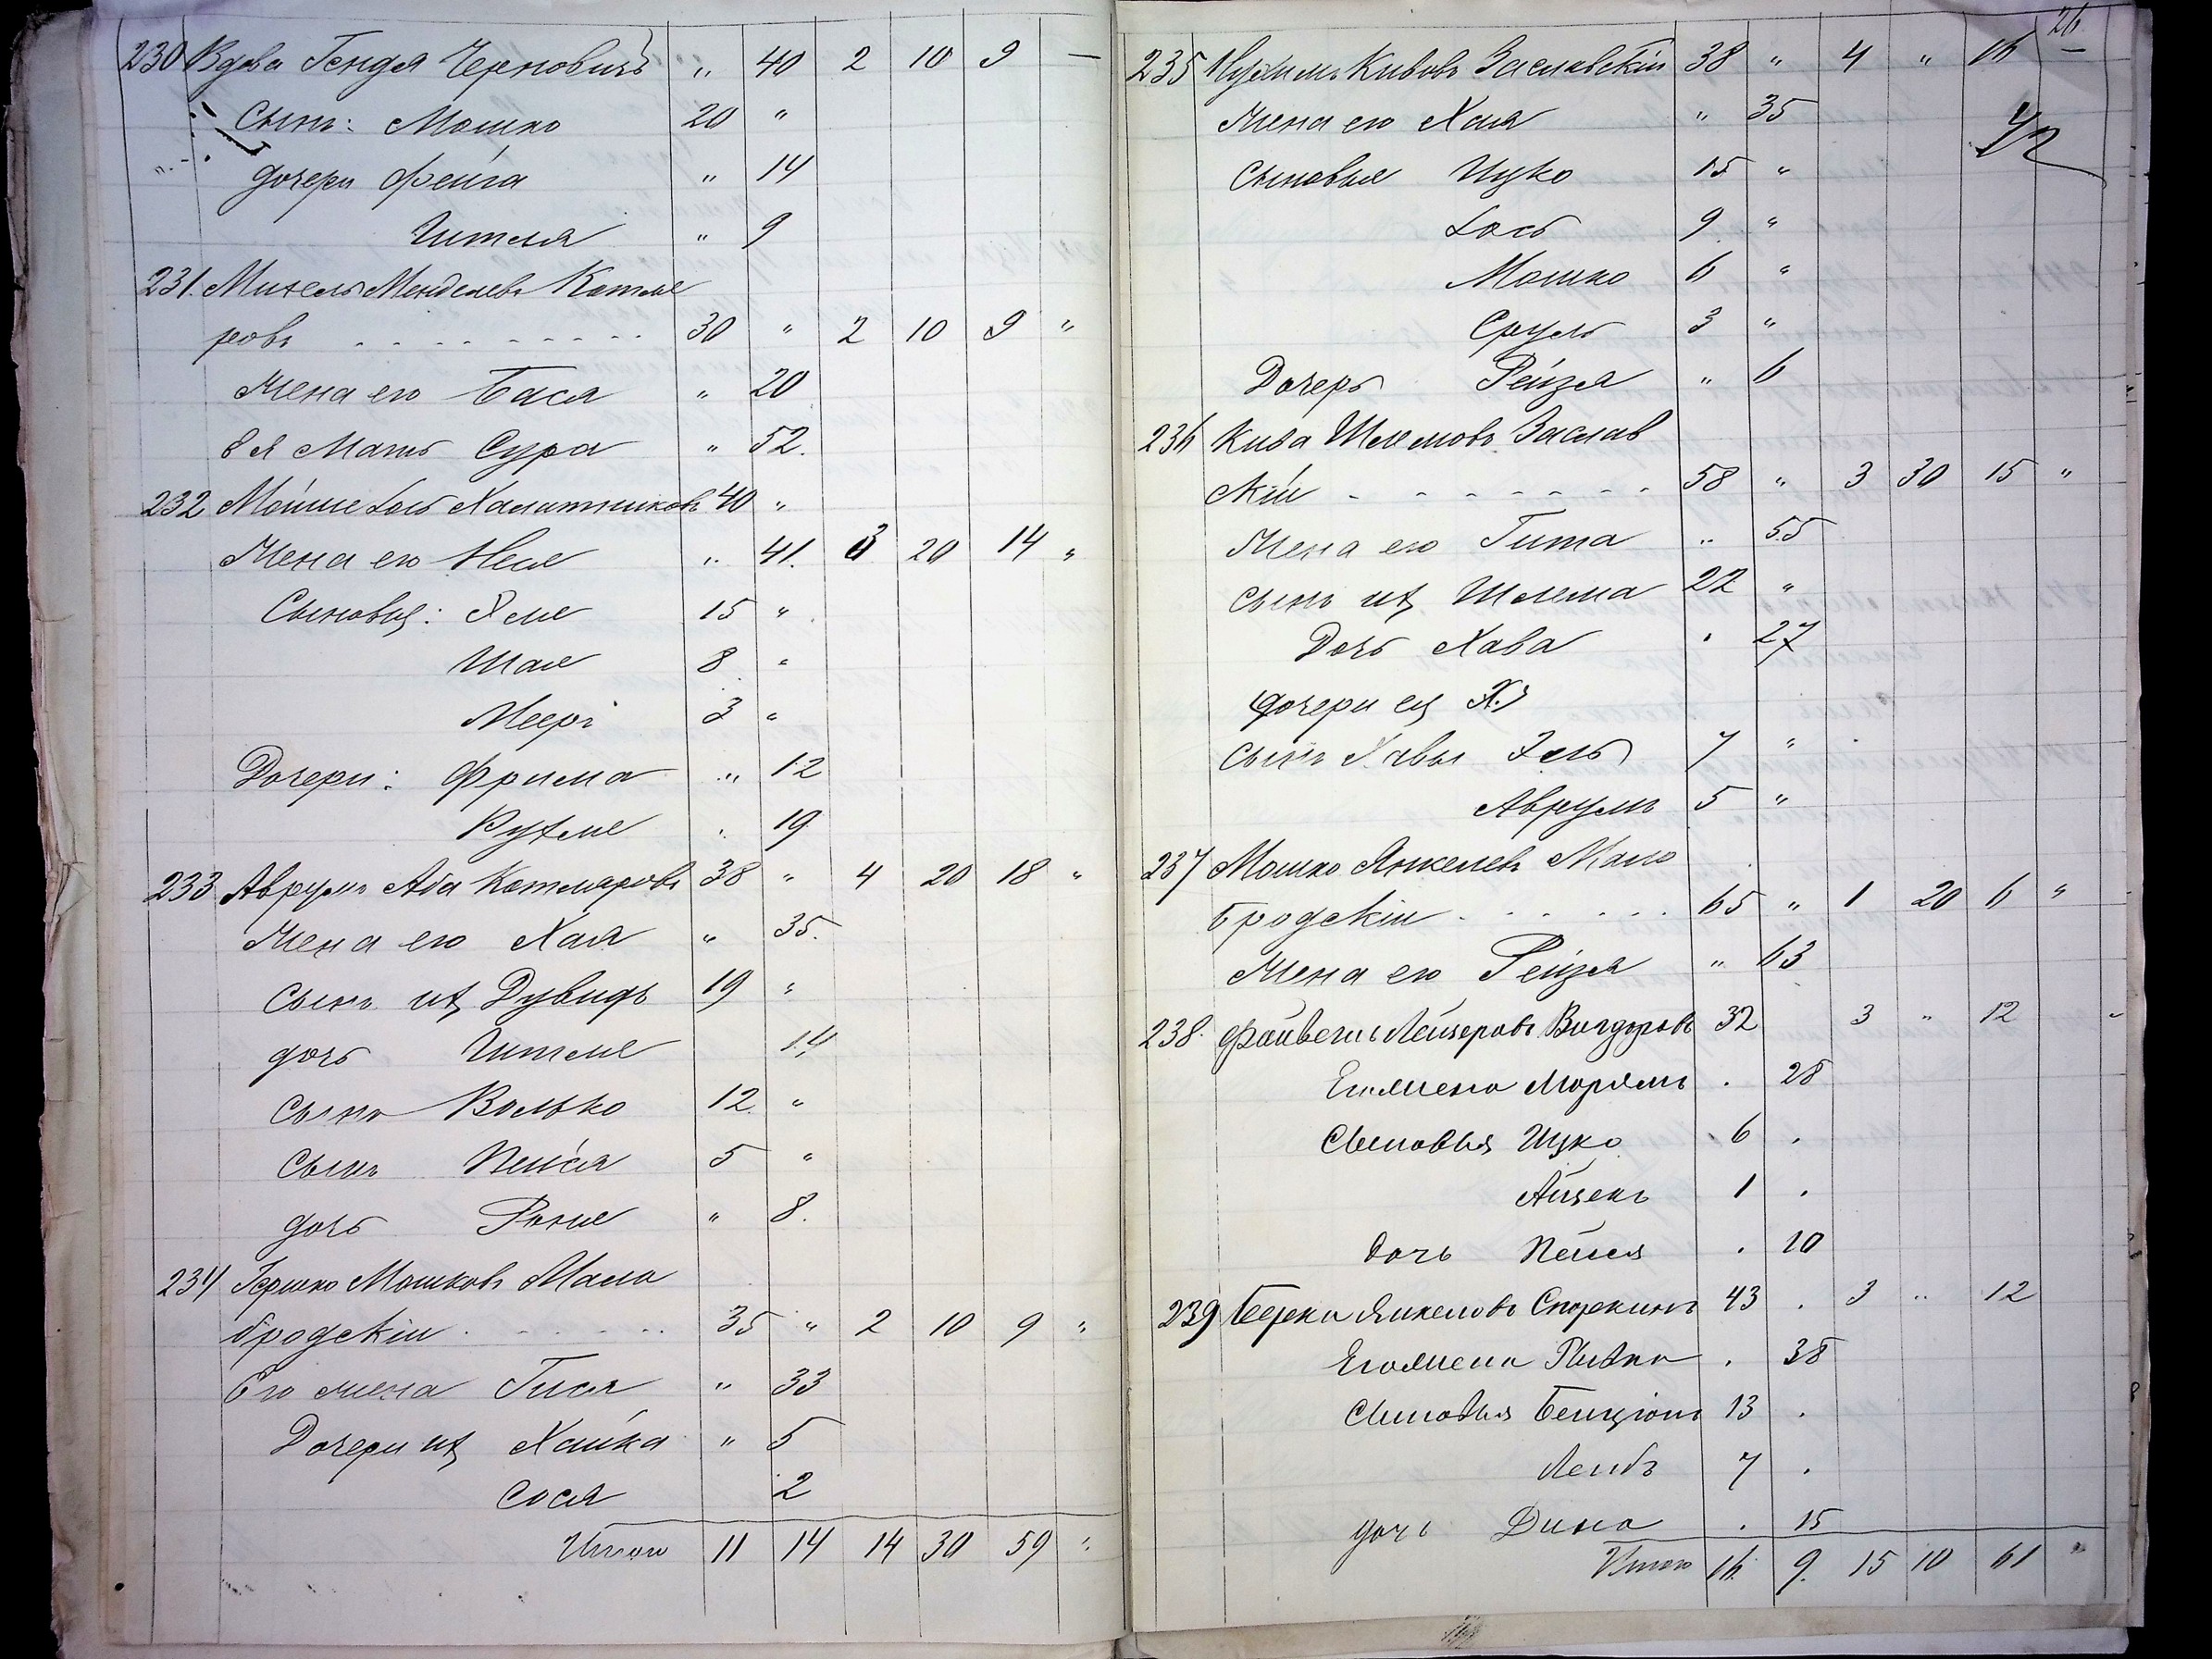 230 Вдова Гендля Черновичъ " 40 2 10 9 —
Сынъ: Мошко 20 "
дочери Фейга " 14
Гитля " 9
231. Михель Менделевъ Котля
ровъ 30 " 2 10 9 "
Жена его Бася " 20
Мать Сура " 52.
232 Мойше Іось 40 "
Жена его " 41. 3 20 14 "
Сыновья: 15 "
Шая 8 "
Мееръ 3 "
Дочери: Фрима " 12
Рухля " 19
233 Аврумъ Аба Котляровъ 38 " 4 20 18 "
Жена его Хая " 35.
Сынъ ихъ Дувидъ 19 "
дочь Гитля 14
Сынъ Волько 12 "
Сынъ Пейся 5 "
дочь " 8.
234 Гершко Мошковъ Мало
бродскій 35 " 2 10 9 "
Его жена Гися " 33
Дочери ихъ Хайка " 5
Сося 2
Итого 11 14 14 30 59 "
26
235 Кивовъ Заславскій 38 " 4 " 16
Жена его Хая " 35
Сыновья Ицко 15 "
Іось 9 "
Мошко 6 "
Сруль 3 "
Дочерь Рейзя " 6
236 Кива Шлемовъ Заслав
скій 58 " 3 30 15 "
Жена его Гита " 55
Сынъ ихъ Шлема 22 "
Дочь Хава " 27
дочери ея Х.
Сынъ Хавы Эль 7 "
Аврумъ 5 "
237 Мошко Янкелевъ Мало
бродскій 65 " 1 20 6 "
Жена его Рейзя " 63
238. Файвель Лейзеровъ 32 3 " 12
Его жена Марьямъ . 28
Сыновья Ицко 6 .
Айзекъ 1 .
дочь Пейся . 10
239 Берко Янкелевъ 43 . 3 " 12
Его жена Ривка . 38
Сыновья Бенціонъ 13 .
Лейбъ 7 .
дочь Дина . 15
Итого 16. 9. 15 10 61 "